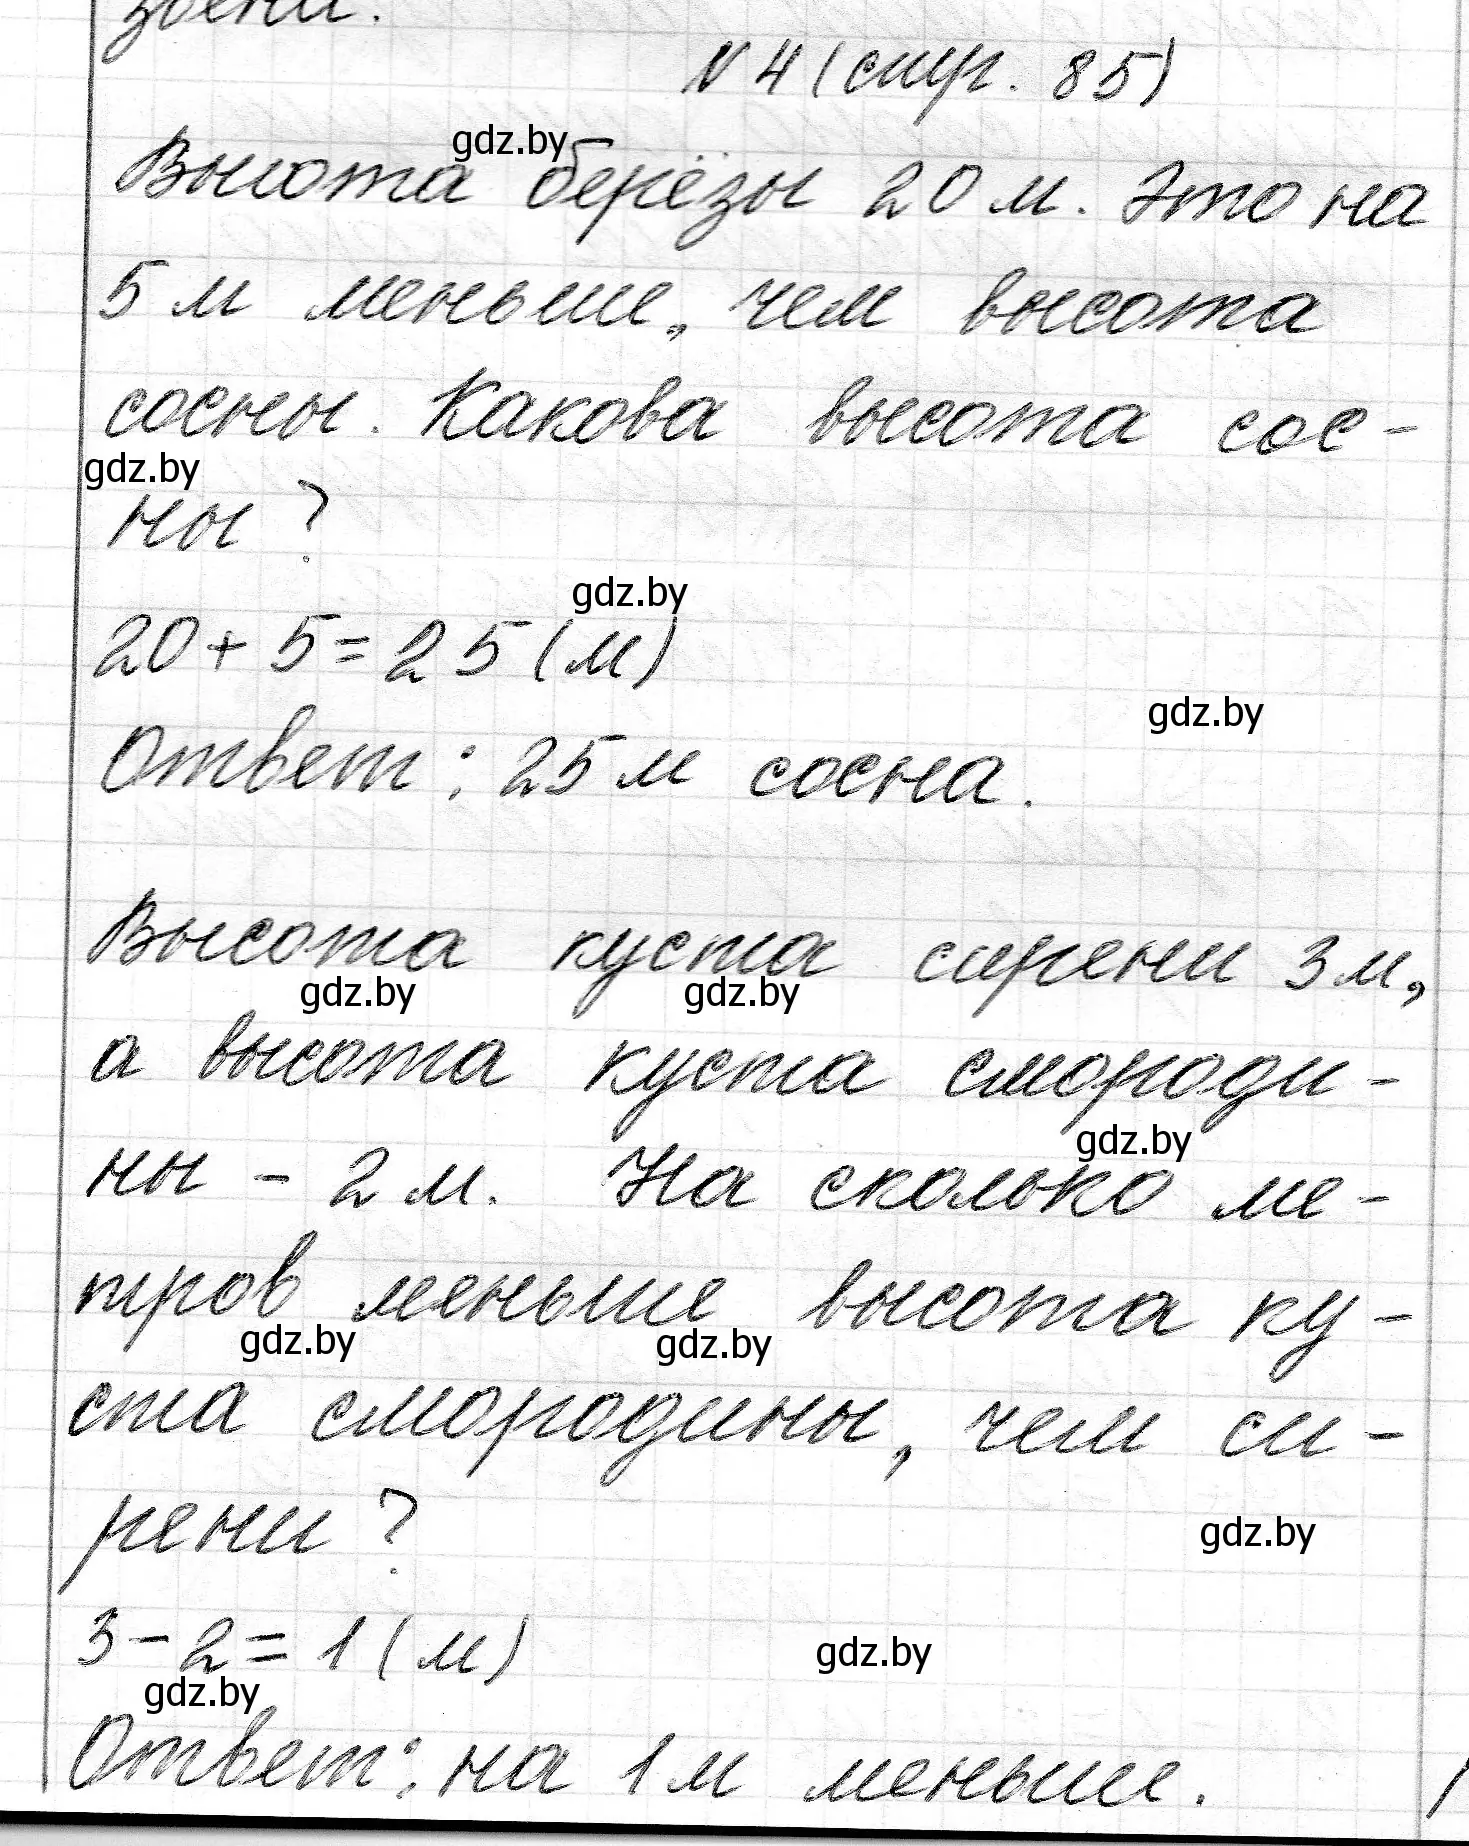 зьени.
№ 4 (стр. 85)
Высота берёзы 20 м. Это на
5 м меньше, чем высота
сосны. Какова высота сос-
ны?
20 + 5 = 25 (м)
Ответ: 25 м сосна.
Высота куста сирени 3 м,
а высота куста смороди-
ны - 2 м. На сколько ме-
тров меньше высота ку-
ста смородины, чем си-
рени?
3 - 2 = 1 (м)
Ответ: на 1 м меньше.
gdz.by
gdz.by
gdz.by
gdz.by
gdz.by
gdz.by
gdz.by
gdz.by
gdz.by
gdz.by
gdz.by
gdz.by